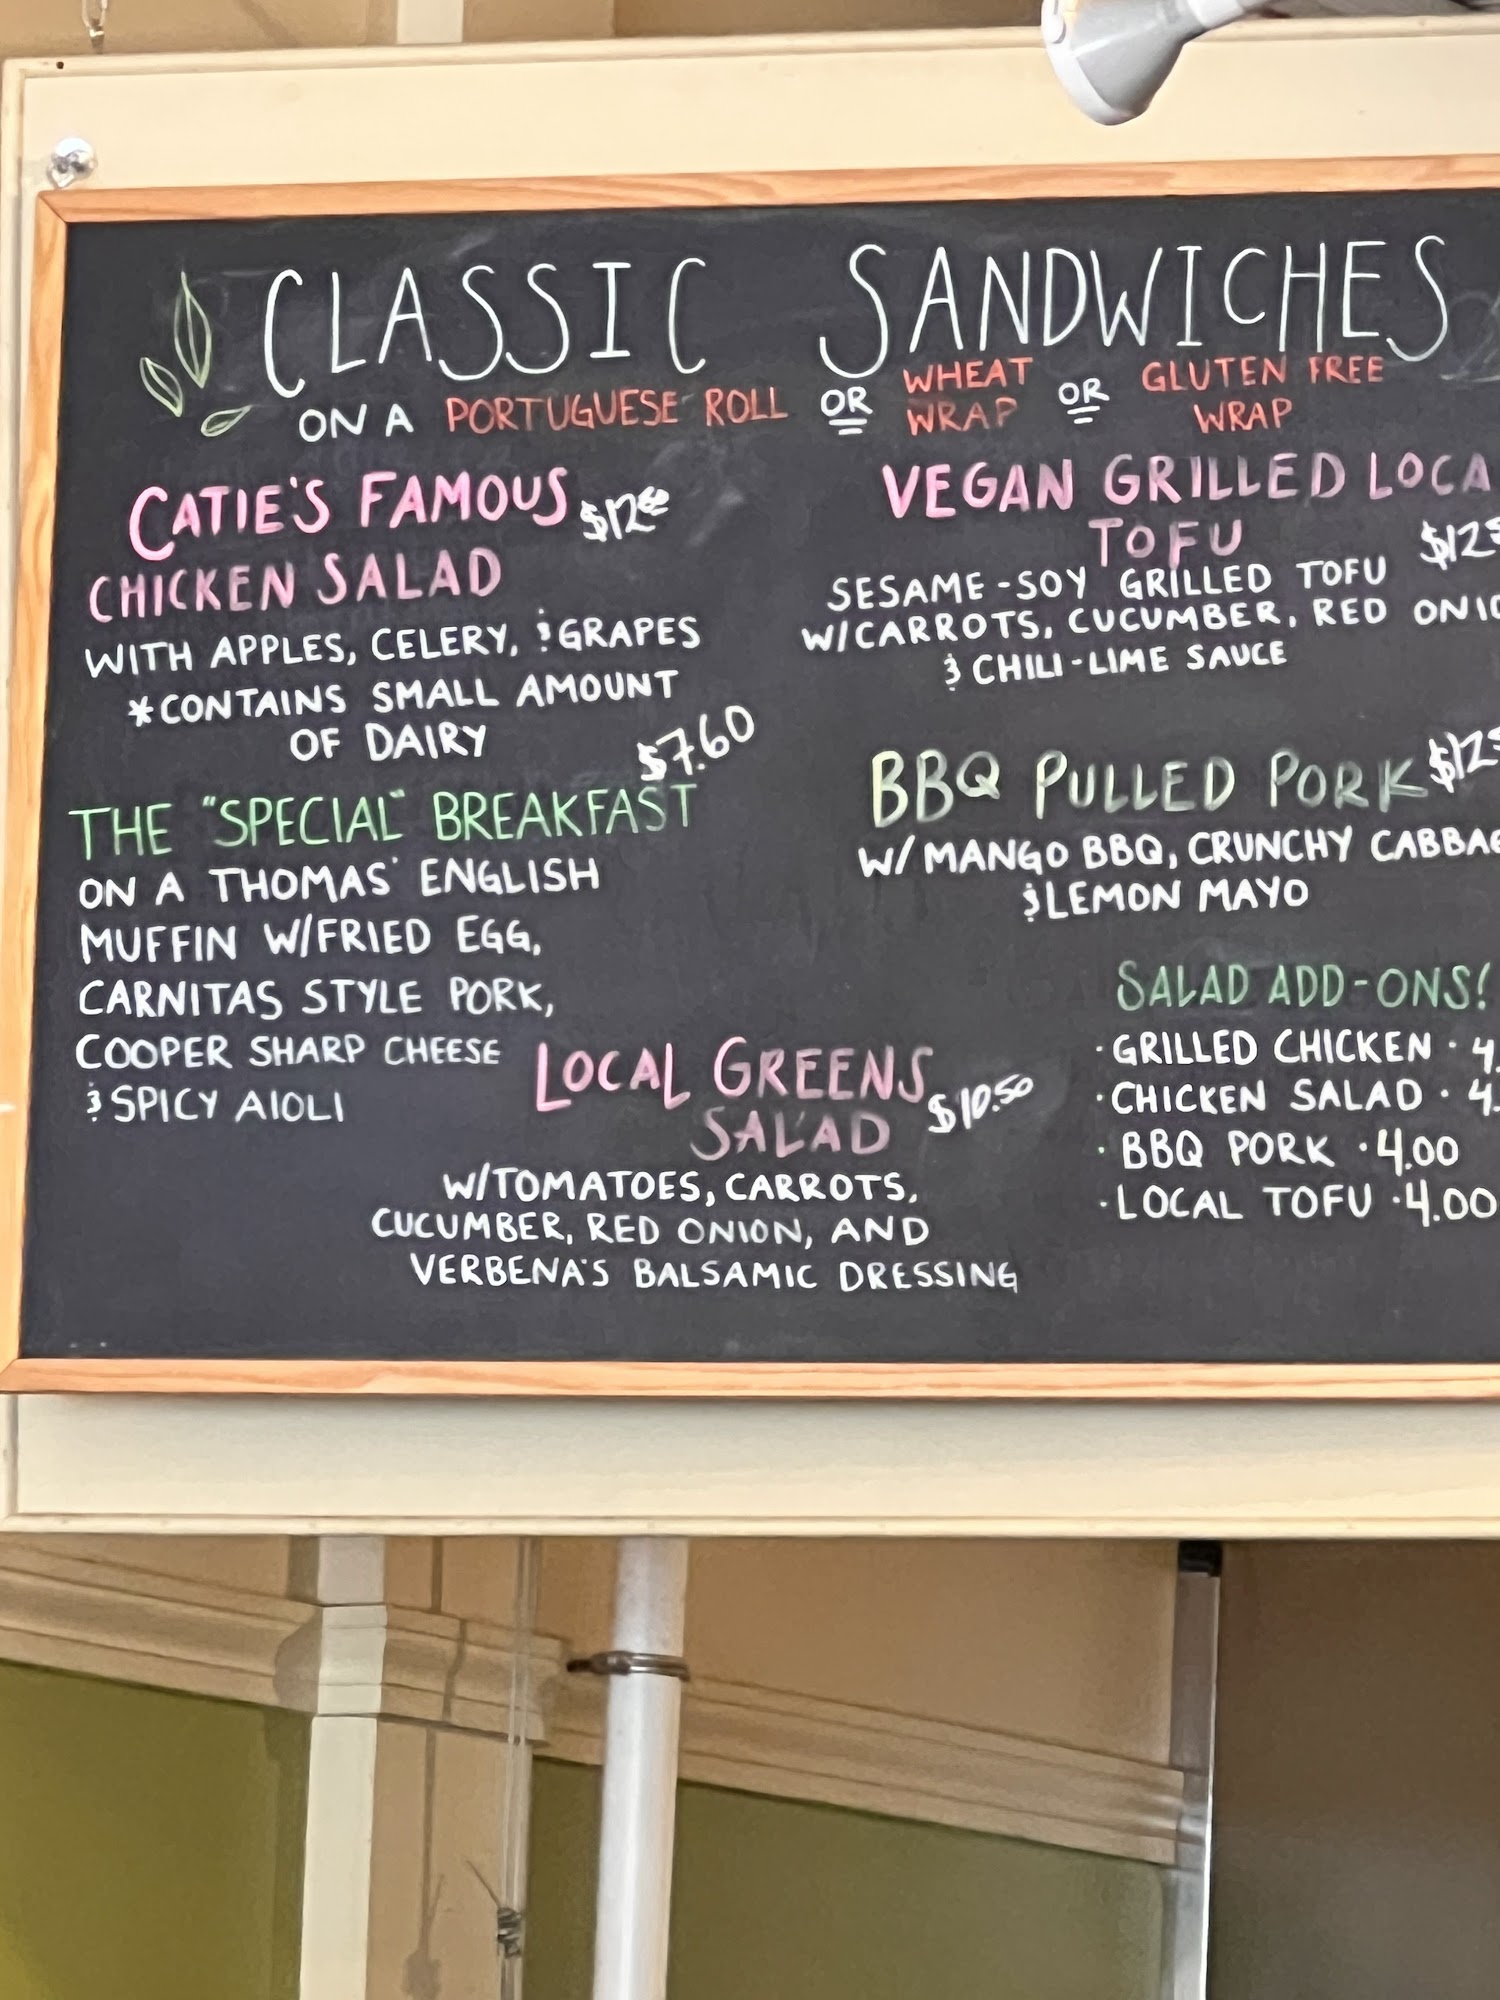 CLASSIC SANDWICHES
ON A PORTUGUESE ROLL OR WHEAT WRAP OR GLUTEN FREE WRAP
CATIE'S FAMOUS
CHICKEN SALAD
WITH APPLES, CELERY, & GRAPES
*CONTAINS SMALL AMOUNT
OF DAIRY
$7.60
THE "SPECIAL" BREAKFAST
ON A THOMAS' ENGLISH
MUFFIN W/FRIED EGG,
CARNITAS STYLE PORK,
COOPER SHARP CHEESE
& SPICY AIOLI
VEGAN GRILLED
TOFU
SESAME-SOY GRILLED TOFU
W/CARROTS, CUCUMBER, RED
& CHILI-LIME SAUCE
BBQ PULLED PORK
W/MANGO BBQ, CRUNCHY
& LEMON MAYO
LOCAL GREENS
SALAD $10.50
W/TOMATOES, CARROTS,
CUCUMBER, RED ONION, AND
VERBENA'S BALSAMIC DRESSING
SALAD ADD-ONS!
· GRILLED CHICKEN ·
· CHICKEN SALAD ·
· BBQ PORK · 4.00
· LOCAL TOFU · 4.00